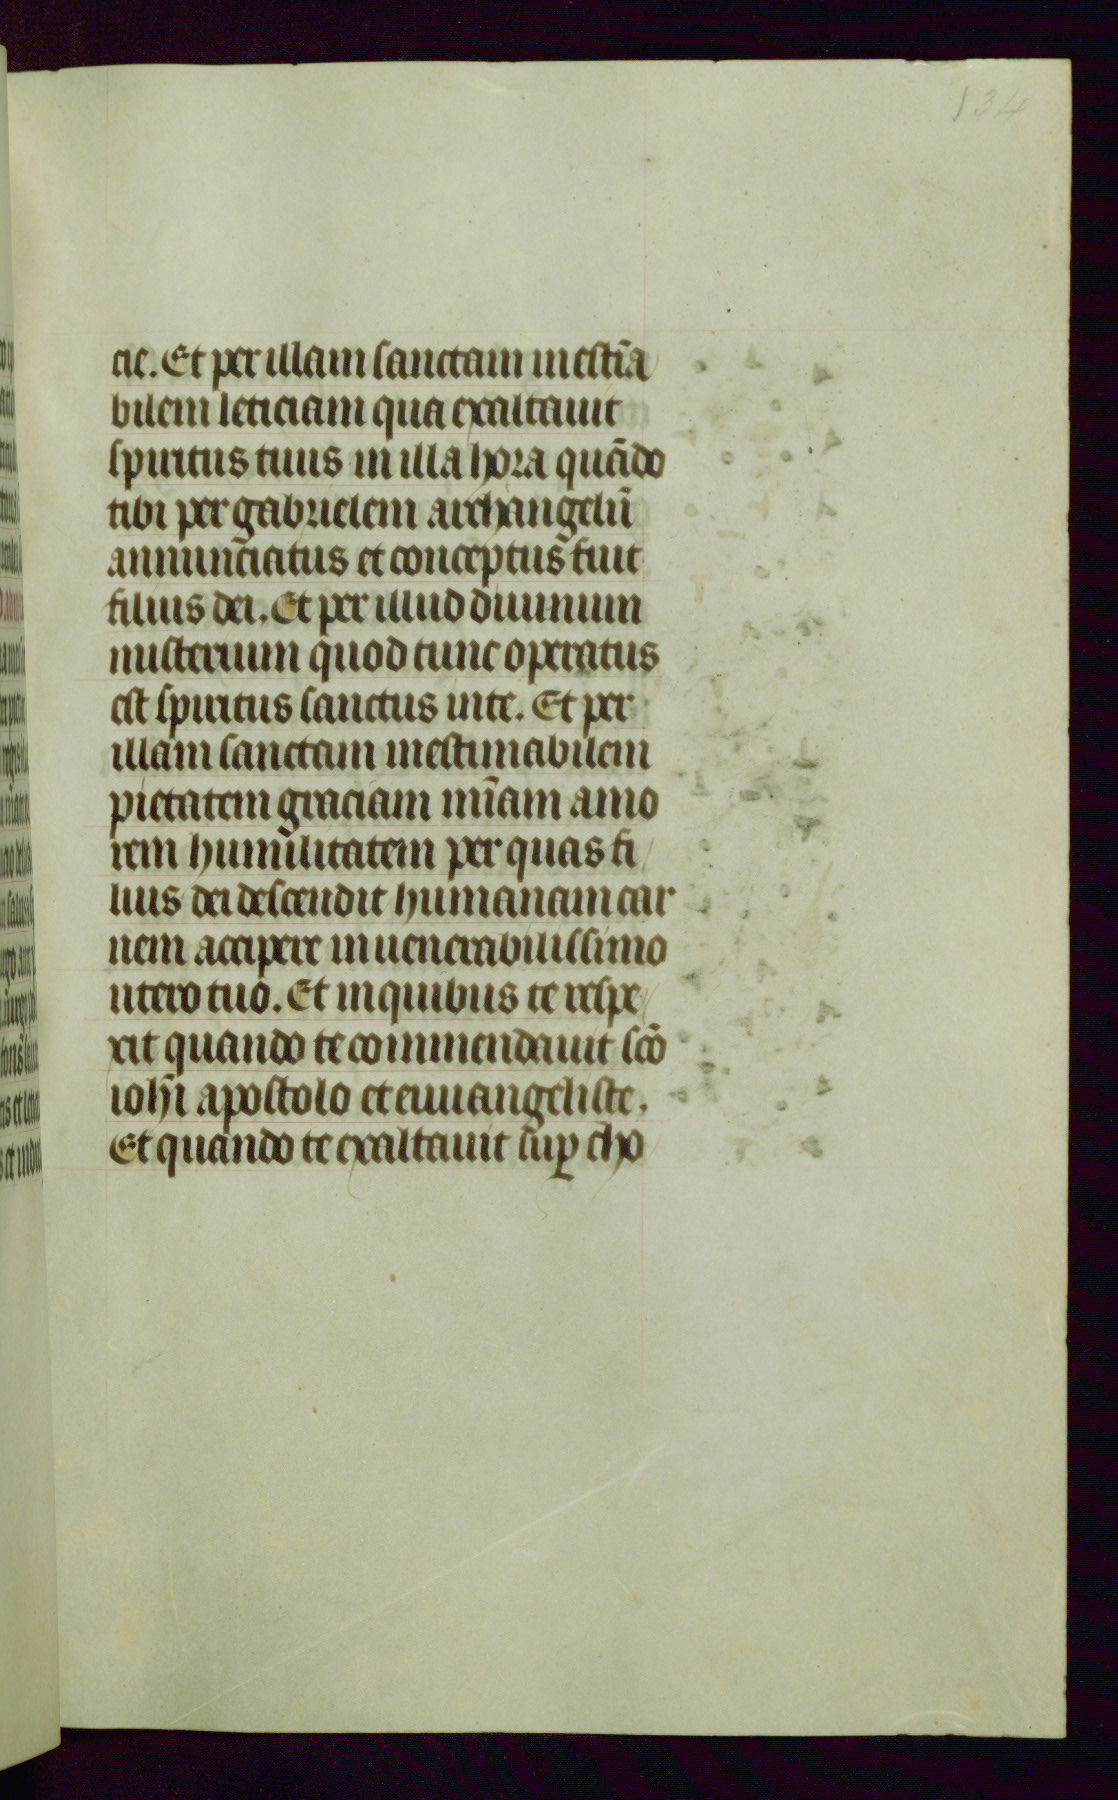 134
cie. Et per illam sanctam inestīa
bilem leticiam qua exaltauit
spiritus tuus in illa hora quādo
tibi per gabrielem archangelū
annunciatus et conceptus fuit
filius dei. Et per illud diuinum
misterium quod tunc operatus
est spiritus sanctus in te. Et per
illam sanctam inestimabilem
pietatem graciam mīam amo
rem humilitatem per quas fi
lius dei descendit humanam car
nem accipere in uenerabilissimo
utero tuo. Et in quibus te respe
xit quando te commendauit scō
iohi apostolo et euuangeliste.
Et quando te exaltauit sup cho